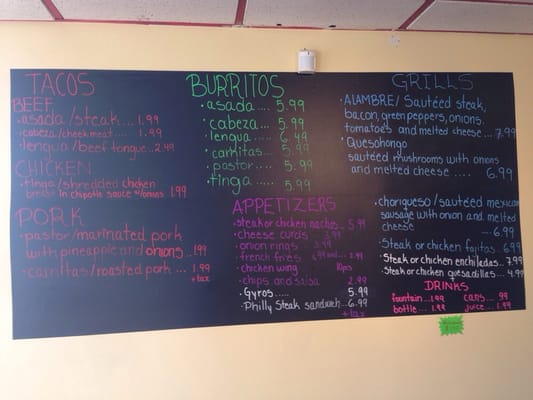 TACOS
BEEF
• asada/steak .... 1.99
• cabeza/cheek meat .... 1.99
• lengua/beef tongue .. 2.49
CHICKEN
• tinga/shredded chicken
breast in chipotle sauce w/onions 1.99
PORK
• pastor/marinated pork
with pineapple and onions .. 1.99
• carnitas/roasted pork ... 1.99
+ tax
BURRITOS
• asada .... 5.99
• cabeza .... 5.99
• lengua .... 6.49
• carnitas .... 5.99
• pastor .... 5.99
• tinga .... 5.99
APPETIZERS
• steak or chicken nachos .. 5.99
• cheese curds .. 3.99
• onion rings .. 3.99
• french fries
• chicken wing 10pcs
• chips and salsa 2.99
• Gyros ..... 5.99
• Philly Steak sandwich .. 6.99
+ tax
GRILLS
• ALAMBRE/ Sautéed steak,
bacon, green peppers, onions,
tomatoes and melted cheese ... 7.99
• Quesohongo
sautéed mushrooms with onions
and melted cheese .... 6.99
• choriqueso/sautéed mexican
sausage with onion and melted
cheese --- 6.99
• Steak or chicken fajitas 6.99
• Steak or chicken enchiladas .. 7.99
• Steak or chicken quesadillas .. 4.99
DRINKS
fountain .. 1.99 cans .. 99
bottle ... 1.99 juice .. 1.99